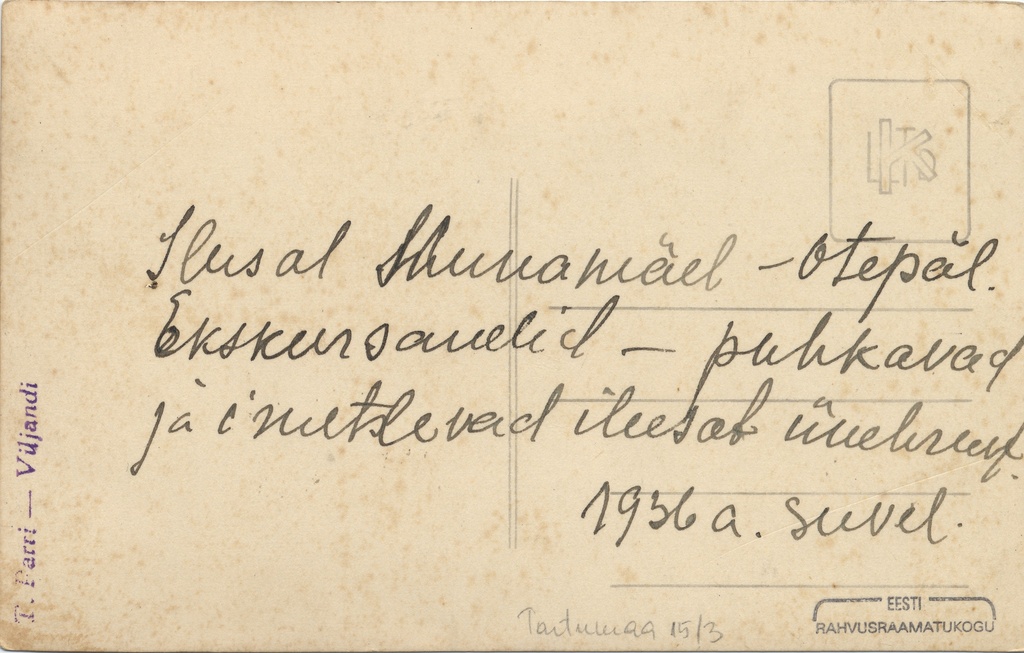 Ilusal Munamäel – Otepäl.
Ekskursandid – puhkavad
ja imetlevad ilusat ümbrust.
1936 a. suvel.
T. Parri — Viljandi
Tartumaa 15/3
EESTI
RAHVUSRAAMATUKOGU